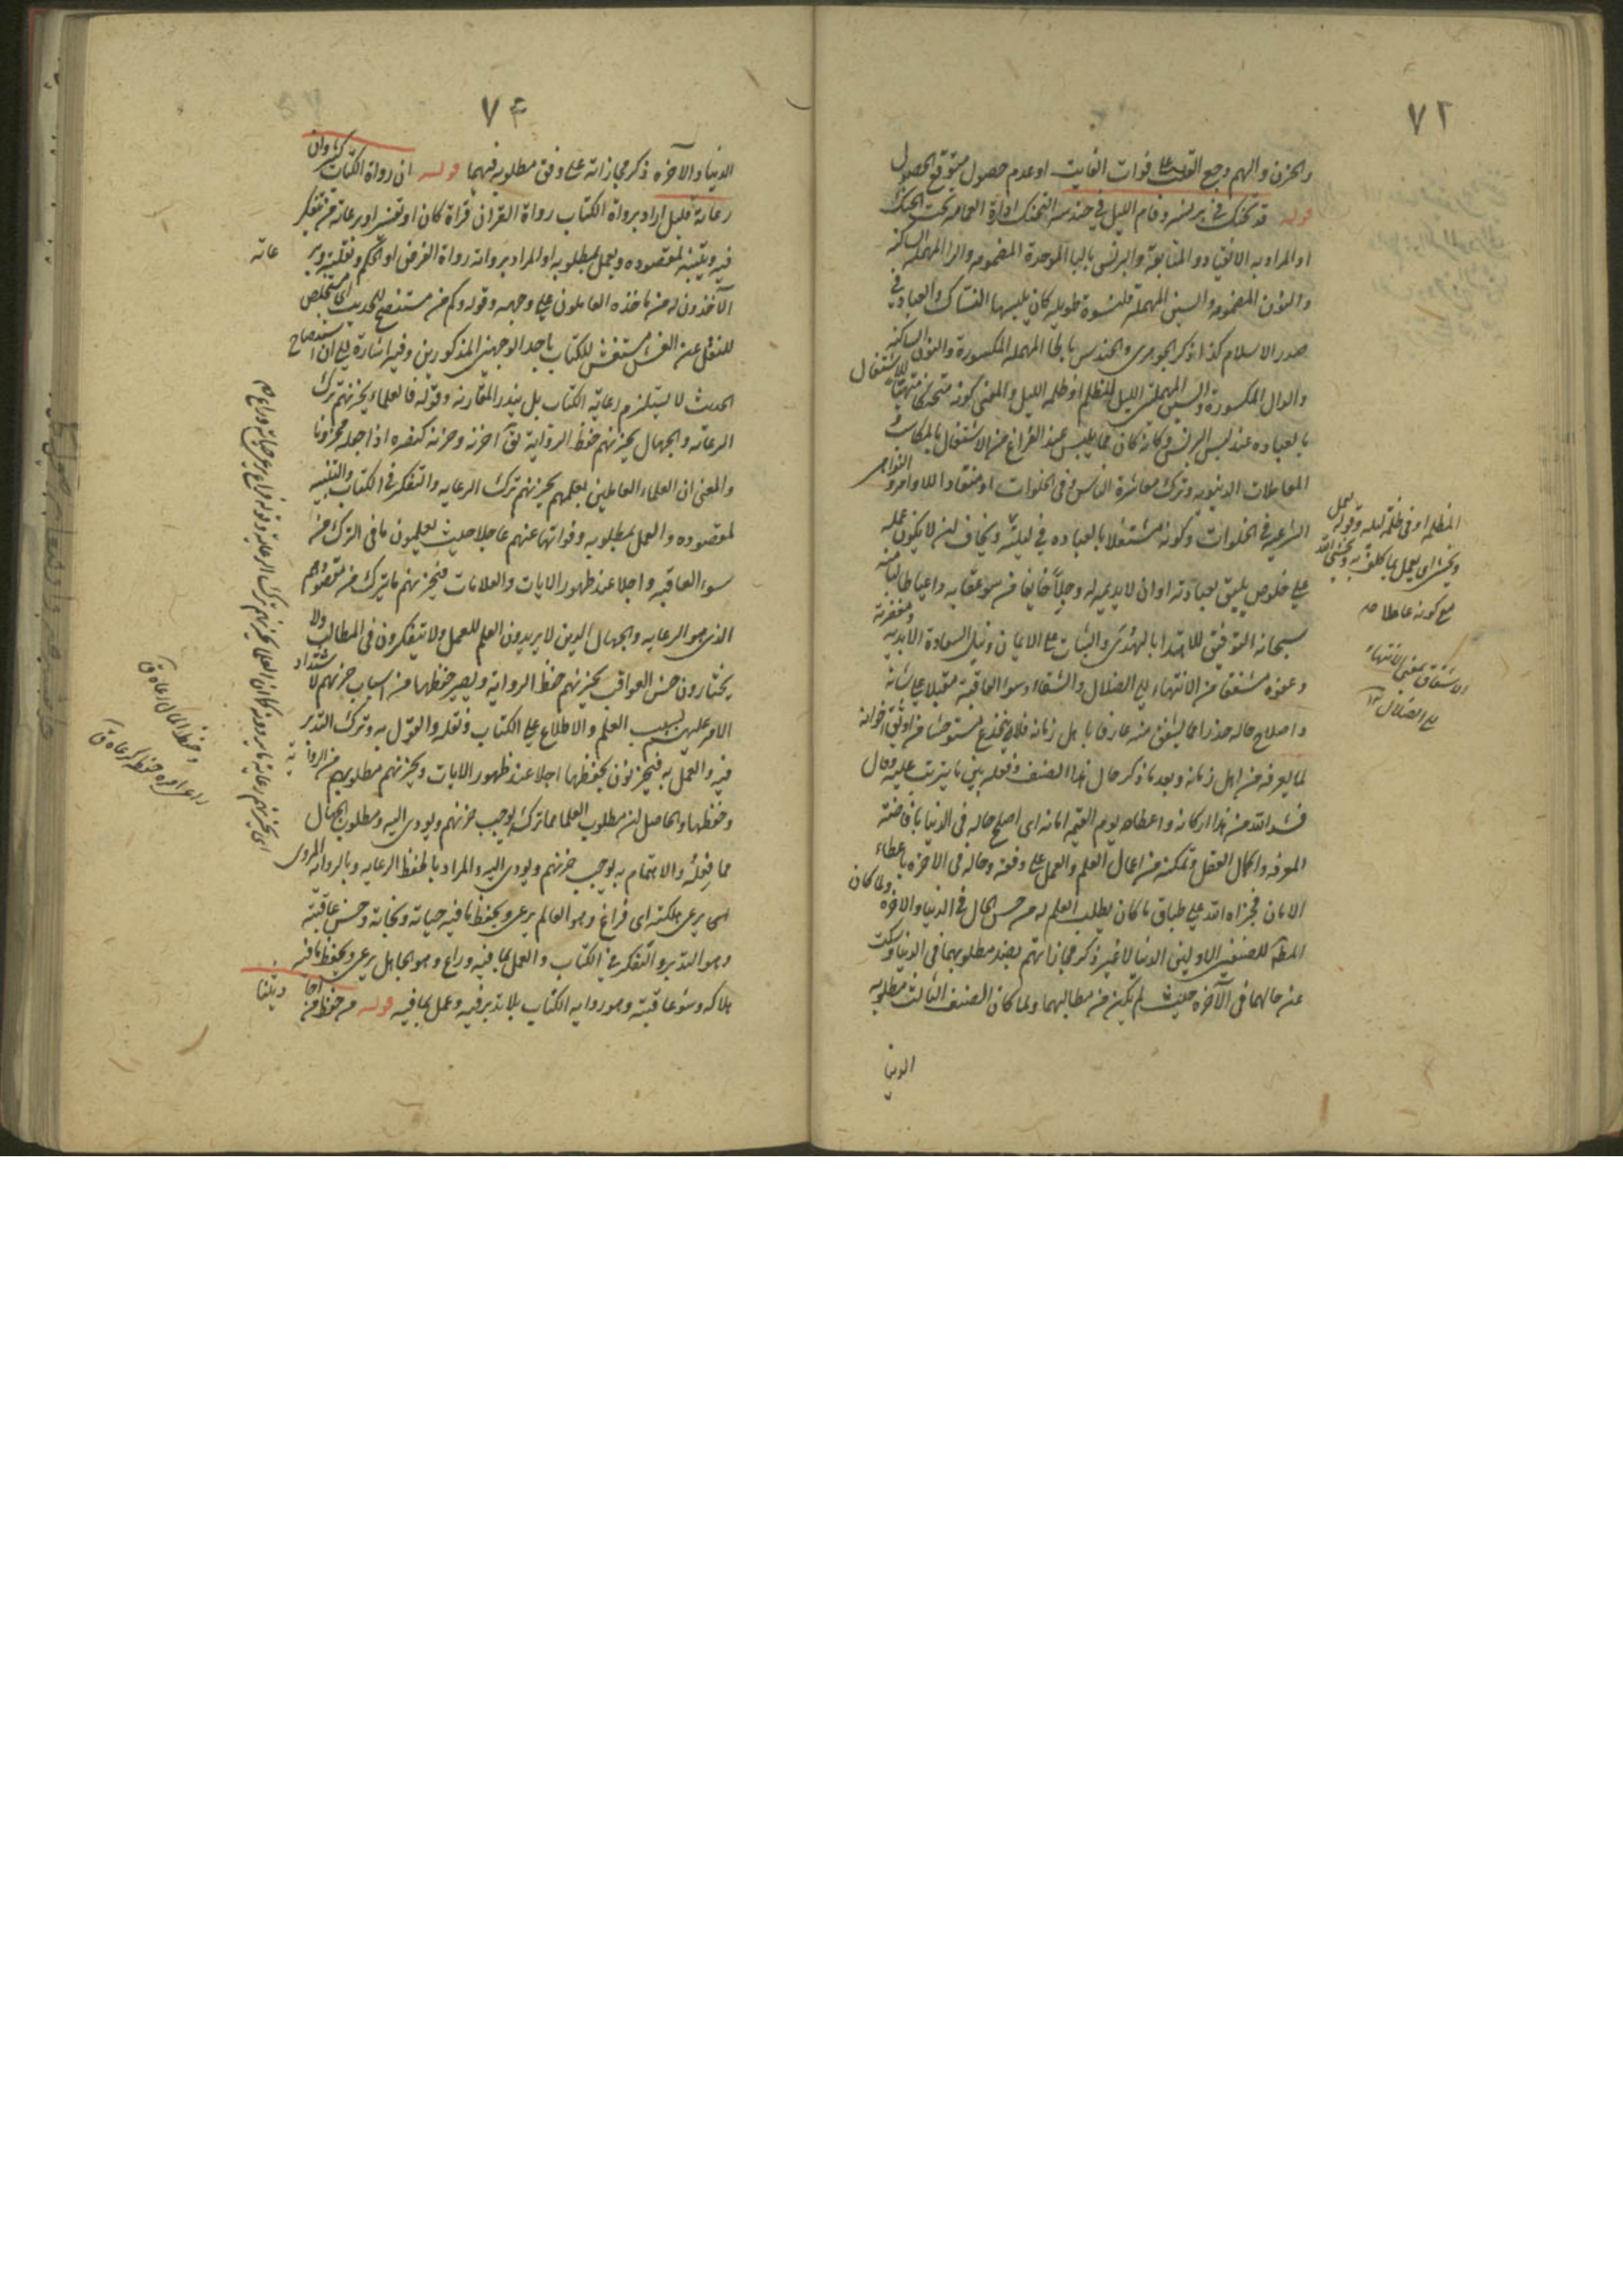 ٧٢
والحزن والهم وجع القلب على فوات الفايت او عدم حصول متوقع الحصول
قوله قد تحنك في برنسه وقام الليل في حندسه التحنك ادارة العمامة تحت الحنك
او المراد به الانقياد والمتابعة والبرنس بالباء الموحدة المضمومة والراء المهملة الساكنة
والنون المضمومة والسين المهملة قلنسوة طويلة كان يلبسها النساك والعباد في
صدر الاسلام كذا ذكر الجوهري والحندس بالحاء المهملة المكسورة والنون الساكنة
والدال المكسورة والسين المهملة الليل المظلم او ظلمة الليل والمعنى كونه متحنكا متهيئا للاشتغال
بالعبادة عند لبس البرنس فكانه كان مما يلبس عند الفراغ من الاشتغال بالمكاسب و
المعاملات الدنيوية وترك معاشرة الناس في الخلوات او منقادا للاوامر والنواهي
الشرعية في الخلوات وكونه مشتغلا بالعبادة في ليلته ويخاف ان لا يكون عمله
على خلوص يليق بعبادته او ان لا يديم له وجلا خايفا من سوء عقابه داعيا طالبا منه
سبحانه التوفيق للاهتداء بالهدى والثبات على الايمان ونيل السعادة الابدية ومغفرته
وعفوه مشفقا من الانتهاء الى الضلال والشقاء وسوء العاقبة مقبلا على شانه
واصلاح حاله حذرا مما يشفق منه عارفا باهل زمانه فلا ينخدع مستوحشا من اوثق اخوانه
لما يعرفه من اهل زمانه وبعد ما ذكر حال هذا الصنف وفعله بين ما يترتب عليه وقال
فشد الله من هذا اركانه واعطاه يوم القيمة امانه اي اصلح حاله في الدنيا بافاضة
المعرفة واكمال العقل وتمكنه من اعمال العلم والعمل على وفقه وحاله في الاخرة باعطاء
الامان فجزاه الله على طباق ما كان يطلب العلم له من حسن الحال في الدنيا والاخرة ولما كان
المط للصنفين الاولين الدنيا لا غير ذكر مجازاتهم بضد مطلوبهما في الدنيا وسكت
عن حالهما في الآخرة حيث لم يكن من مطالبهما ولما كان الصنف الثالث مطلوبه
الدنيا
المظلمة او في ظلمة ليله وقوله يعمل
ويخشى اي يعمل بما كلف به ويخشى الله
مع كونه عاملا
الاشفاق بمعنى الانتهاء
الى الضلال
٧٤
الدنيا والآخرة ذكر مجازاته على وفق مطلوبه فيهما قوله ان رواة الكتاب كثير وان
رعاته قليل اراد برواة الكتاب رواة القران قراة كان او تفسيرا وبرعاته من تفكر
فيه ويتنبه لمقصوده ويعمل بمطلوبه او المراد برواته رواة الفرض او الحكم ونقلته وبر
عاته
الآخذون له من ماخذه العاملون على وجهه وقوله وكم من مستنصح للحديث اي مستخلص
للنقل عن الغش مستغش للكتاب باحد الوجهين المذكورين وفيه اشارة الى ان استنصاح
الحديث لا يستلزم رعاية الكتاب بل يندر المقارنة وقوله فالعلماء يحزنهم ترك
الرعاية والجهال يحزنهم حفظ الرواية يق احزنه وحزنه كنصره اذا جعله محزونا
والمعنى ان العلماء العاملين بعلمهم يحزنهم ترك الرعاية والتفكر في الكتاب والتنبه
لمقصوده والعمل بمطلوبه وفواتها عنهم عاجلا حيث يعلمون ما في الترك من
سوء العاقبة واجلا عند ظهور الايات والعلامات فيحزنهم ما يترك من مقصودهم
الذي هو الرعاية والجهال الذين لا يريدون العلم للعمل ولا يتفكرون في المطالب ولا
يختارون حسن العواقب يحزنهم حفظ الرواية ويصير حفظها من اسباب حزنهم لاشتداد
الامر عليهم بسبب العلم والاطلاع على الكتاب ونقله والقول به وترك التدبر
فيه والعمل به فيحزنون بحفظها اجلا عند ظهور الايات ويحزنهم مطلوبهم من الروا
ية
وحفظها والحاصل ان مطلوب العلماء مما تركه يوجب حزنهم ويودي اليه ومطلوب الجهال
مما فعله والاهتمام به يوجب حزنهم ويودي اليه والمراد بالحفظ الرعاية وبالرواية المروي
اي يرعى هلكته اي فراغ وهو العالم يرعى ويحفظ ما فيه حياته ونجاته وحسن عاقبته
وهو التدبر والتفكر في الكتاب والعمل بما فيه وراع وهو الجاهل يرعى ويحفظ ما فيه
هلاكه وسوء عاقبته وهو رواية الكتاب بلا تدبر فيه وعمل بما فيه قوله من حفظ من